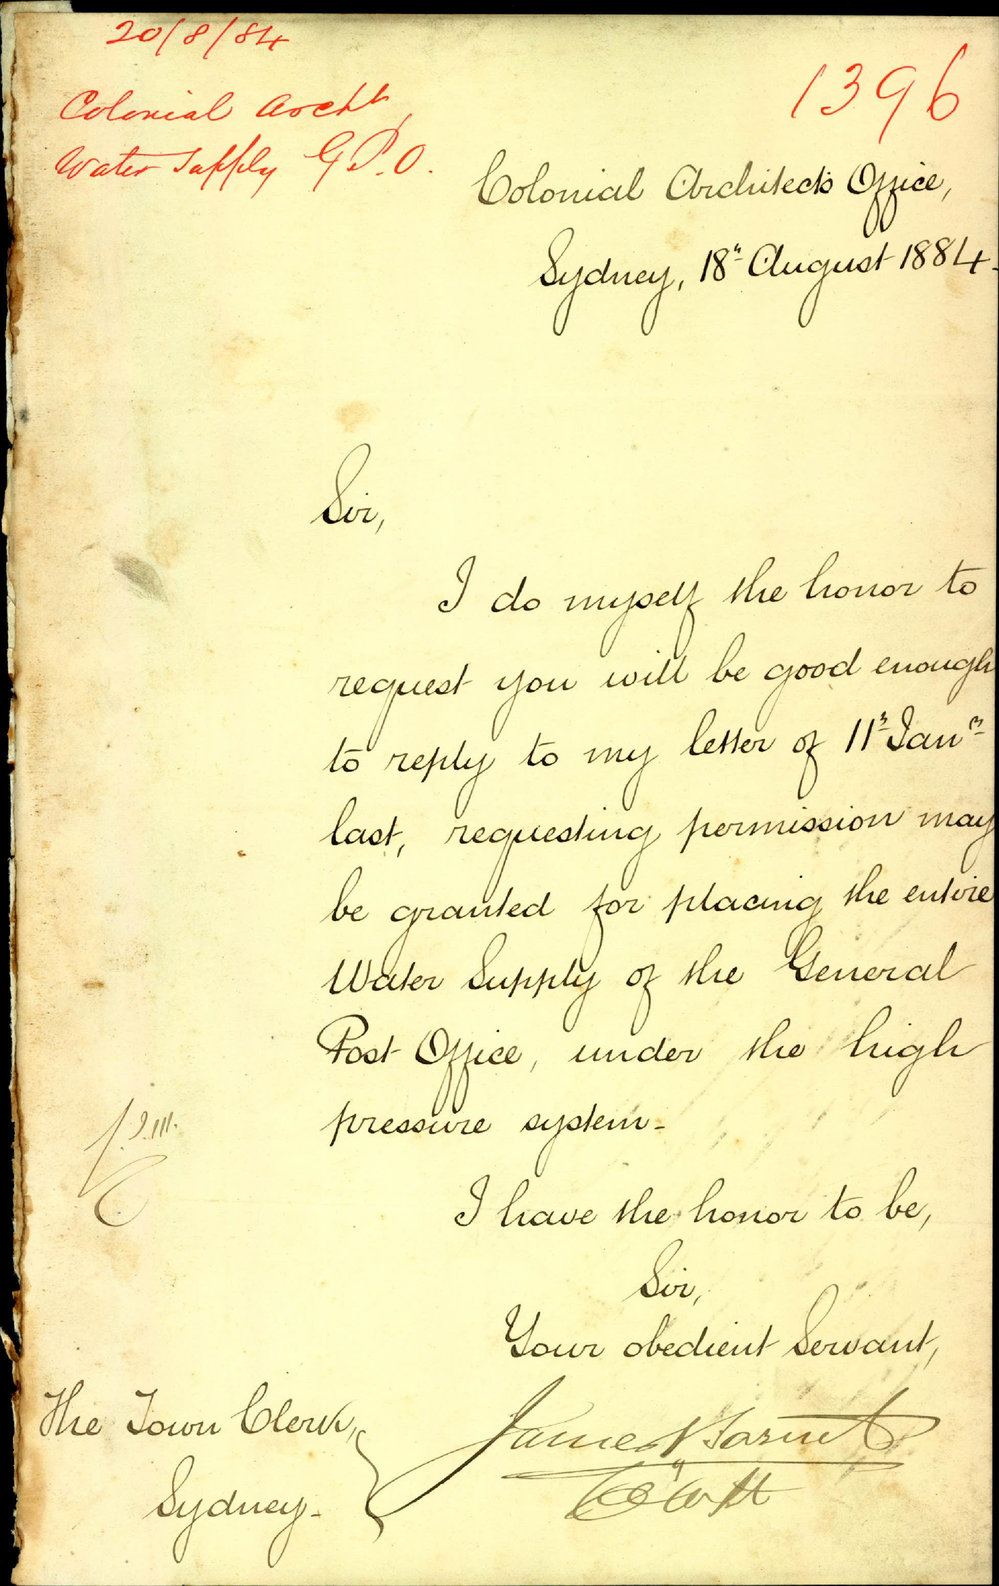 20/8/84
1396
Colonial Archt
Water Supply G.P.O.
Colonial Architect's Office,
Sydney, 18" August 1884.
Sir,
I do myself the honor to
request you will be good enough
to reply to my letter of 11" Jany
last, requesting permission may
be granted for placing the entire
Water Supply of the General
Post Office, under the high
pressure system-
I have the honor to be,
Sir,
Your obedient Servant,
James Barnet
The Town Clerk,
Sydney-